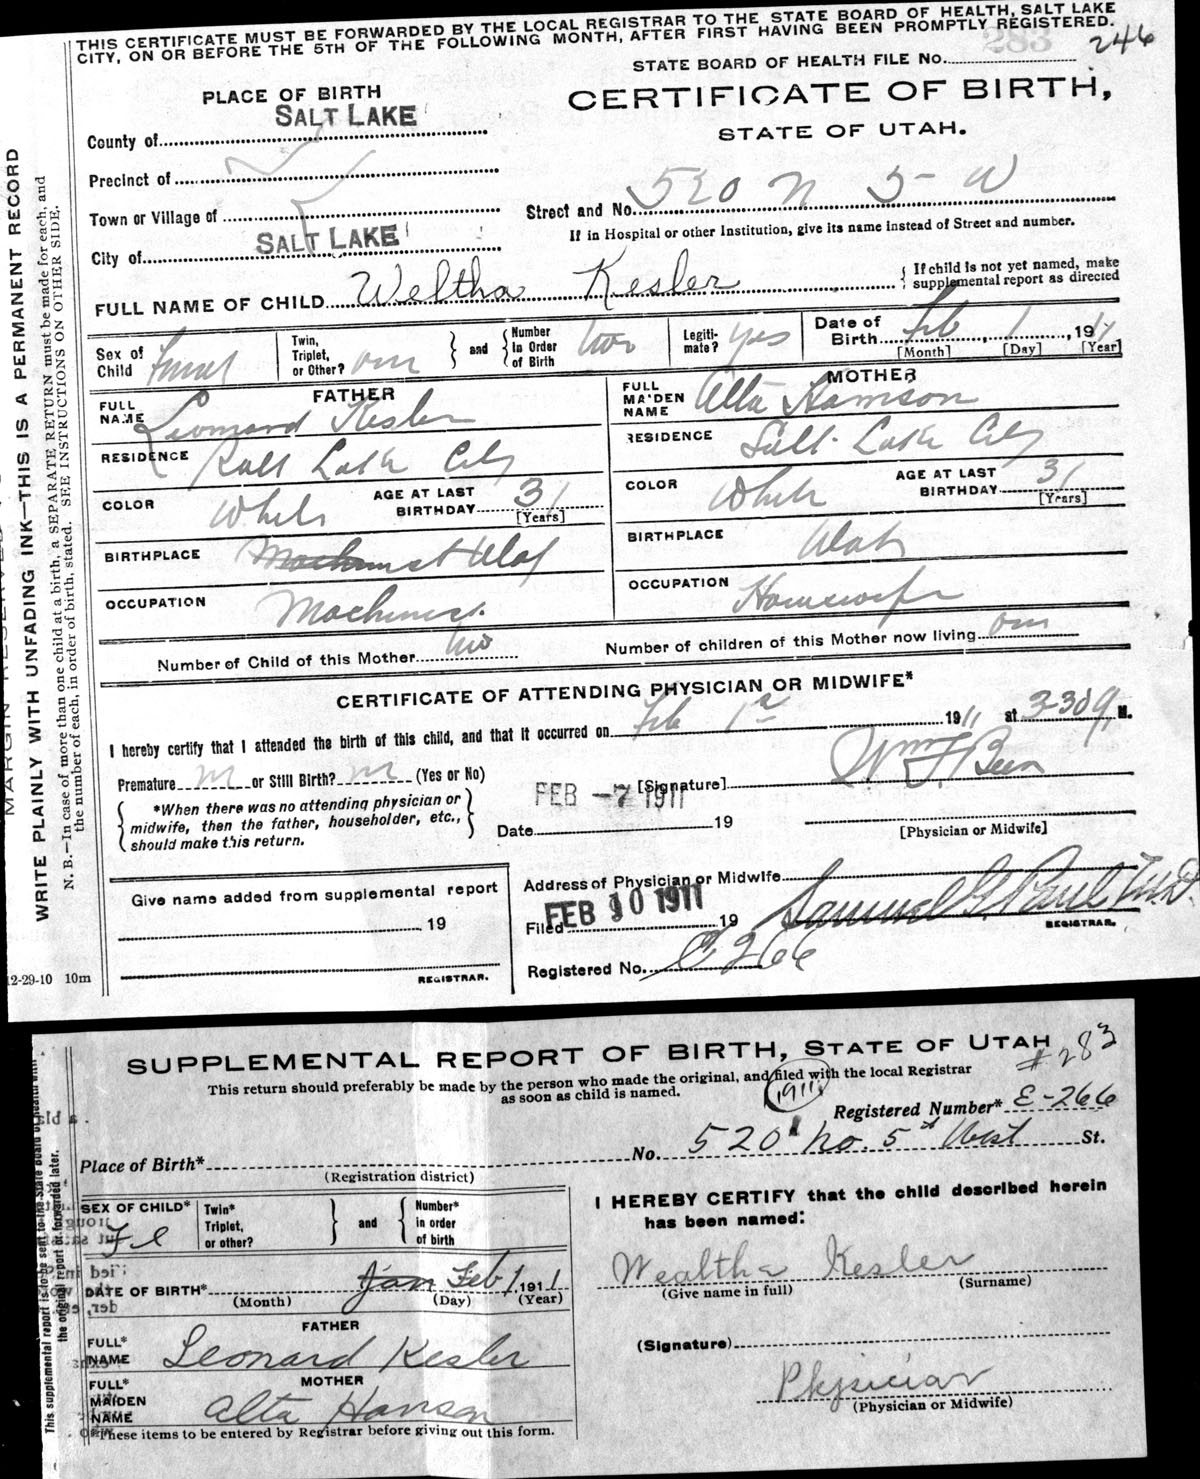 THIS CERTIFICATE MUST BE FORWARDED BY THE LOCAL REGISTRAR TO THE STATE BOARD OF HEALTH, SALT LAKE
CITY, ON OR BEFORE THE 5TH OF THE FOLLOWING MONTH, AFTER FIRST HAVING BEEN PROMPTLY REGISTERED.
283 246
STATE BOARD OF HEALTH FILE No.
PLACE OF BIRTH
CERTIFICATE OF BIRTH,
STATE OF UTAH.
County of SALT LAKE
Precinct of
Town or Village of
Street and No. 520 N 5 W
If in Hospital or other Institution, give its name instead of Street and number.
City of SALT LAKE
FULL NAME OF CHILD Weltha Kesler { If child is not yet named, make supplemental report as directed
Sex of Child Twin, Triplet, or Other? } and { Number in Order of Birth two Legiti-mate? yes Date of Birth Feb 1, 191
[Month] [Day] [Year]
FATHER
MOTHER
FULL NAME Leonard Kesler
FULL MAIDEN NAME Alta
RESIDENCE Salt Lake City
RESIDENCE Salt Lake City
COLOR White AGE AT LAST BIRTHDAY 31 [Years]
COLOR White AGE AT LAST BIRTHDAY 31 [Years]
BIRTHPLACE Utah
BIRTHPLACE Utah
OCCUPATION Machinist
OCCUPATION Housewife
Number of Child of this Mother two
Number of children of this Mother now living
CERTIFICATE OF ATTENDING PHYSICIAN OR MIDWIFE*
I hereby certify that I attended the birth of this child, and that it occurred on Feb 1st 1911 at 3-30 M.
Premature or Still Birth? (Yes or No)
[Signature]
*When there was no attending physician or
midwife, then the father, householder, etc.,
should make this return.
FEB -7 1911
Date 19
[Physician or Midwife]
Give name added from supplemental report
19
REGISTRAR.
Address of Physician or Midwife
FEB 10 1911
Filed 19
Samuel G. Paul
REGISTRAR.
Registered No. 266
12-29-10 10m
WRITE PLAINLY WITH UNFADING INK—THIS IS A PERMANENT RECORD
N. B.—In case of more than one child at a birth, a SEPARATE RETURN must be made for each, and
the number of each, in order of birth, stated. SEE INSTRUCTIONS ON OTHER SIDE.
SUPPLEMENTAL REPORT OF BIRTH, STATE OF UTAH
#283
This return should preferably be made by the person who made the original, and filed with the local Registrar
as soon as child is named.
1911
Registered Number* E-266
Place of Birth* No. 520 No. 5th West St.
(Registration district)
SEX OF CHILD* Twin* Triplet, or other? } and { Number* in order of birth
I HEREBY CERTIFY that the child described herein
has been named:
Wealtha Kesler
(Give name in full) (Surname)
DATE OF BIRTH* Jan Feb 1, 1911
(Month) (Day) (Year)
FATHER
FULL* NAME Leonard Kesler
(Signature)
MOTHER
FULL* MAIDEN NAME Alta Hanson
Physician
(Physician or Midwife)
*These items to be entered by Registrar before giving out this form.
This supplemental report is to be sent to the State Board of Health with
the original report or forwarded later.